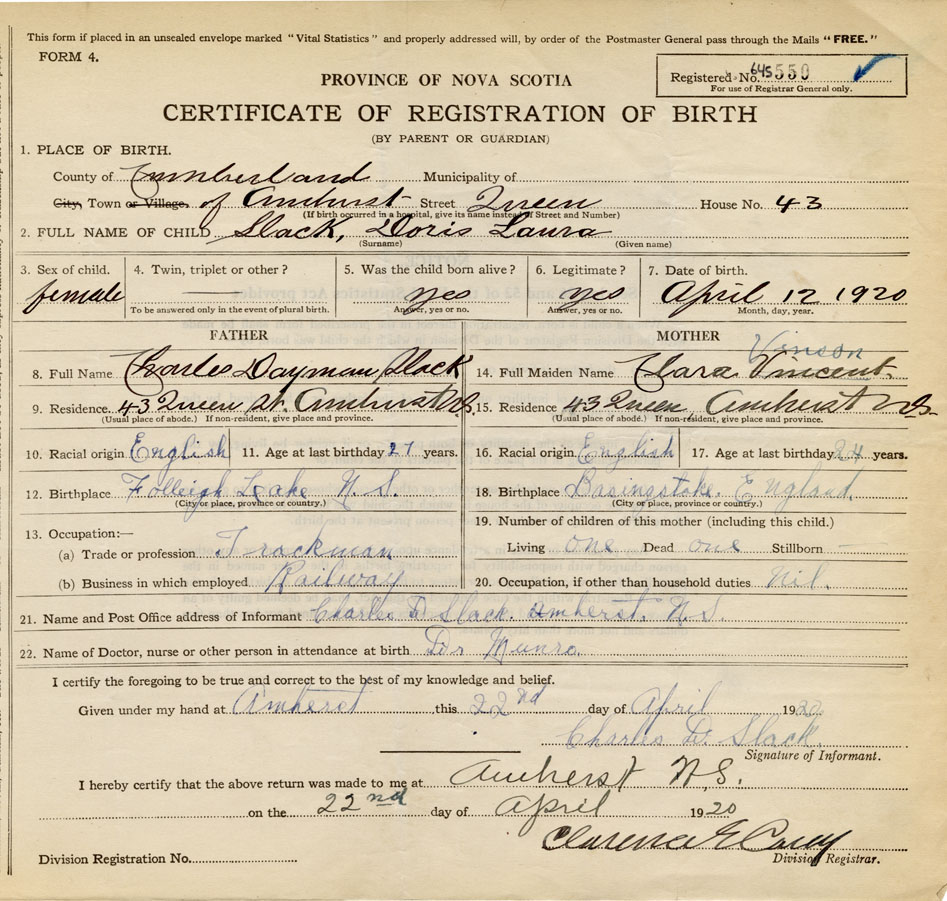 This form if placed in an unsealed envelope marked "Vital Statistics" and properly addressed will, by order of the Postmaster General pass through the Mails "FREE."
FORM 4.
Registered No. 645550
For use of Registrar General only.
PROVINCE OF NOVA SCOTIA
CERTIFICATE OF REGISTRATION OF BIRTH
(BY PARENT OR GUARDIAN)
1. PLACE OF BIRTH.
County of Cumberland Municipality of
City, Town or Village. of Amhurst Street Queen House No. 43
(If birth occurred in a hospital, give its name instead of Street and Number)
2. FULL NAME OF CHILD Slack, Doris Laura
(Surname) (Given name)
3. Sex of child. 4. Twin, triplet or other? 5. Was the child born alive? 6. Legitimate? 7. Date of birth.
female — yes yes April 12 1920
To be answered only in the event of plural birth. Answer, yes or no. Answer, yes or no. Month, day, year.
FATHER MOTHER
Vinson
8. Full Name Charles Dayman Slack 14. Full Maiden Name Clara Vincent.
9. Residence. 43 Queen St. Amhurst N.S. 15. Residence 43 Queen, Amherst N.S.
(Usual place of abode.) If non-resident, give place and province. (Usual place of abode.) If non-resident, give place and province.
10. Racial origin English 11. Age at last birthday 27 years. 16. Racial origin English 17. Age at last birthday 24 years.
12. Birthplace Folleigh Lake N.S. 18. Birthplace Basingstoke. England.
(City or place, province or country.) (City or place, province or country.)
13. Occupation:— 19. Number of children of this mother (including this child.)
(a) Trade or profession Trackman Living one Dead one Stillborn -
(b) Business in which employed Railway 20. Occupation, if other than household duties Nil.
21. Name and Post Office address of Informant Charles D Slack. Amherst. N.S.
22. Name of Doctor, nurse or other person in attendance at birth Dr Munro.
I certify the foregoing to be true and correct to the best of my knowledge and belief.
Given under my hand at Amherst this 22nd day of April 1920
Charles D. Slack.
Signature of Informant.
I hereby certify that the above return was made to me at Amherst N.S.
on the 22nd day of April 1920
Clarence E Casey
Division Registrar.
Division Registration No.